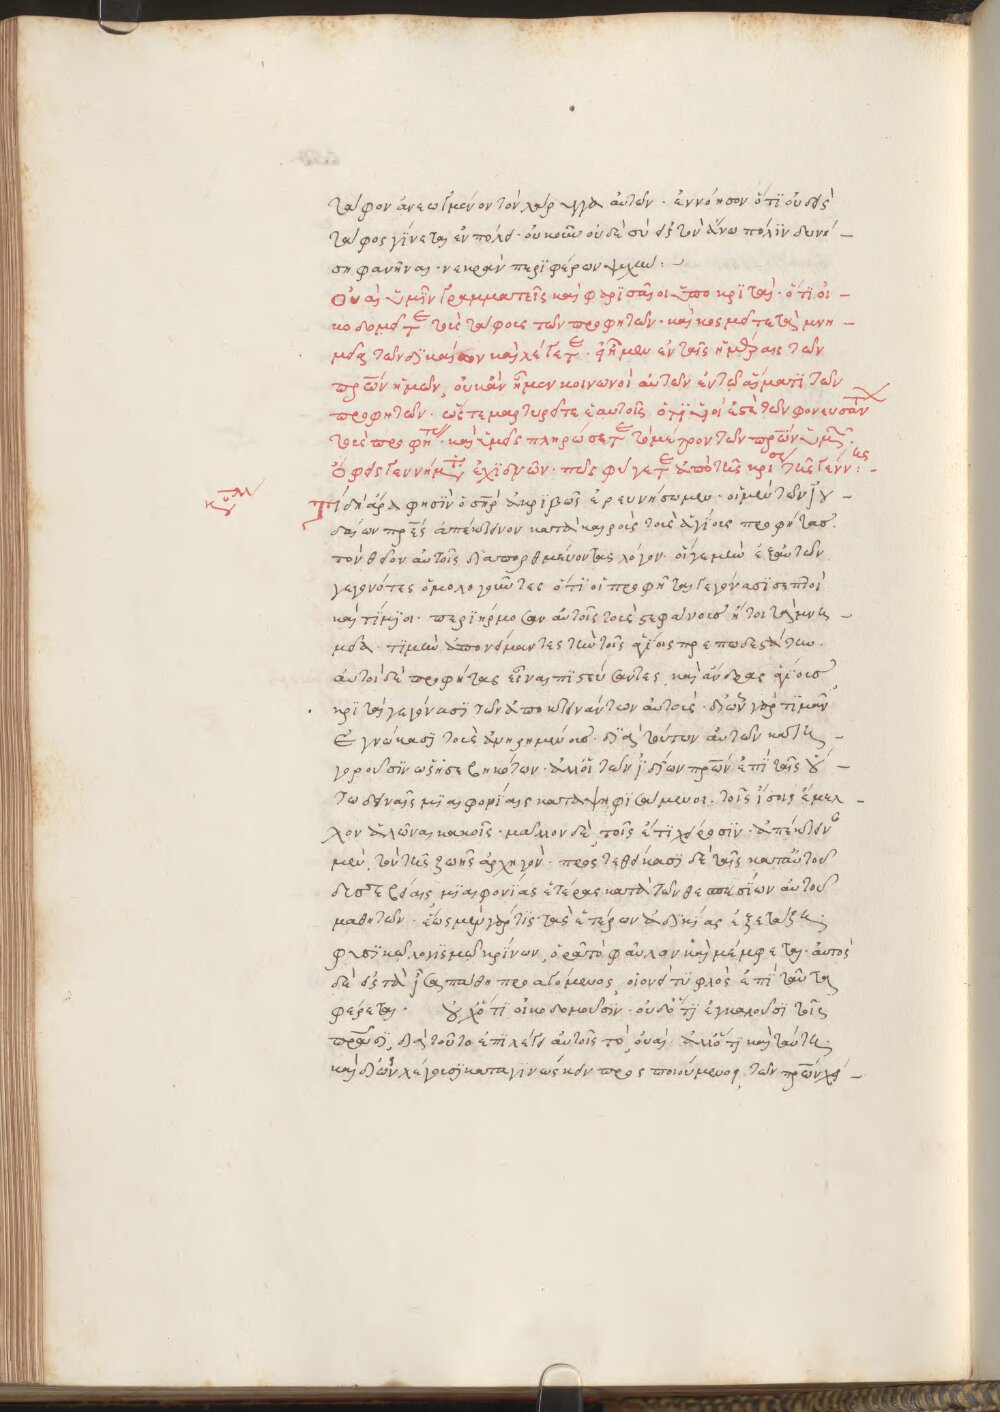 τάφον ἀνεωγμένον τὸν λάρυγγα αὐτῶν · ἐννόησον ὅτι οὐδεὶς
τάφος γίνεται ἐν πόλει · οὐκοῦν οὐδὲ σὺ εἰς τὴν ἄνω πόλιν δυνή –
σῃ φανῆναι · νεκρὰν περιφέρων ψυχήν : –
Οὐαὶ ὑμῖν γραμματεῖς καὶ φαρισαῖοι ὑποκριταί · ὅτι οἰ –
κοδομεῖτε τοὺς τάφους τῶν προφητῶν · καὶ κοσμεῖτε τὰ μνη –
μεῖα τῶν δικαίων καὶ λέγετε · εἰ ἦμεν ἐν ταῖς ἡμέραις τῶν
πρων ἡμῶν, οὐκ ἂν ἦμεν κοινωνοὶ αὐτῶν ἐν τῷ αἵματι τῶν
προφητῶν · ὥστε μαρτυρεῖτε ἑαυτοῖς ὅτι υἱοί ἐστε τῶν φονευσάντων
τοὺς προφήτας · καὶ ὑμεῖς πληρώσετε τὸ μέτρον τῶν πρων ὑμῶν ·
Ὄφεις γεννήματα ἐχιδνῶν · πῶς φύγετε ἀπὸ τῆς κρίσεως τῆς γεέννης : –
κυριλλου
Τί δὴ ἄρα φησὶν ὁ σηρ ἀκριβῶς ἐρευνήσωμεν · οἱ μὲν τῶν ἰου –
δαίων πρες ἀπέκτεινον κατὰ καιροὺς τοὺς ἁγίους προφήτας
τὸν θεῖον αὐτοῖς διαπορθμεύοντας λόγον · οἵ γε μὴν ἐξ αὐτῶν
γεγονότες ὁμολογοῦντες ὅτι οἱ προφῆται γεγόνασι σεπτοί
καὶ τίμιοι · περιήρμοσαν αὐτοῖς τοὺς στεφάνους ἤτοι τὰ μνη –
μεῖα · τιμὴν ἀπονέμοντες τὴν τοῖς ἁγίοις πρεπωδεστάτην ·
αὐτοὶ δὲ προφήτας εἶναι πιστεύσαντες καὶ ἄνδρας ἁγίους
κριταὶ γεγόνασι τῶν ἀποκτεινάντων αὐτούς · δι' ὧν γὰρ τιμᾶν
ἐγνώκασι τοὺς ἀνῃρημένους · διὰ τούτων αὐτῶν κατη –
γοροῦσιν ὡς ἠσεβηκότων · ἀλλ' οἱ τῶν ἰδίων πρων ἐπὶ ταῖς οὕ –
τω δειναῖς μιαιφονίαις καταψηφισάμενοι · τοῖς ἴσοις ἔμελ –
λον ἁλῶναι κακοῖς · μᾶλλον δὲ τοῖς ἔτι χείροσιν · ἀπέκτειναν
μὲν τὸν τῆς ζωῆς ἀρχηγόν · προστεθείκασι δὲ ταῖς κατ' αὐτοῦ
δυσσεβείαις μιαιφονίας ἑτέρας κατὰ τῶν θεσπεσίων αὐτοῦ
μαθητῶν · ἕως μὲν γάρ τις τὰς ἑτέρων ἀδικίας ἐξετάζει ·
φιλονίσμῳ κρίνων, ὁρᾷ τὸ φαῦλον καὶ μέμφεται · αὐτὸς
δὲ εἰς τὰ ἴσα πάθη προαγόμενος, οἱονεὶ τυφλὸς ἐπὶ ταῦτα
φέρεται · οὐχ ὅτι οἰκοδομοῦσιν · οὐδ' ὅτι ἐγκαλοῦσι τοῖς
πρασι, διὰ τοῦτο ἐπιλέγει αὐτοῖς τὸ, οὐαί · ἀλλ' ὅτι καὶ ταύτῃ ·
καὶ δι' ὧν λέγουσι καταγινώσκειν προσποιούμενοι τῶν πρων χεί –